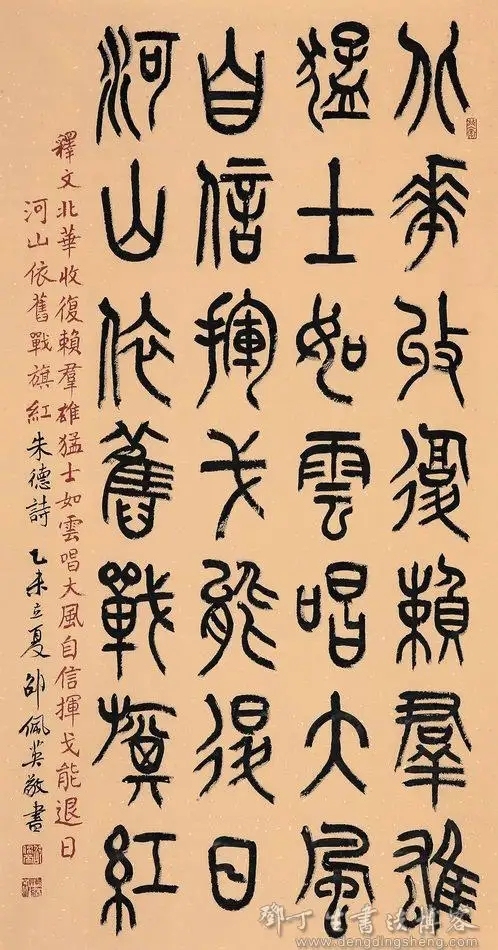 北華收復賴羣雄
猛士如雲唱大風
自信揮戈能退日
河山依舊戰旗紅
釋文北華收復賴羣雄猛士如雲唱大風自信揮戈能退日
河山依舊戰旗紅朱德詩 乙未立夏邵佩英敬書
鄧丁生書法博客
www.dengdingsheng.com